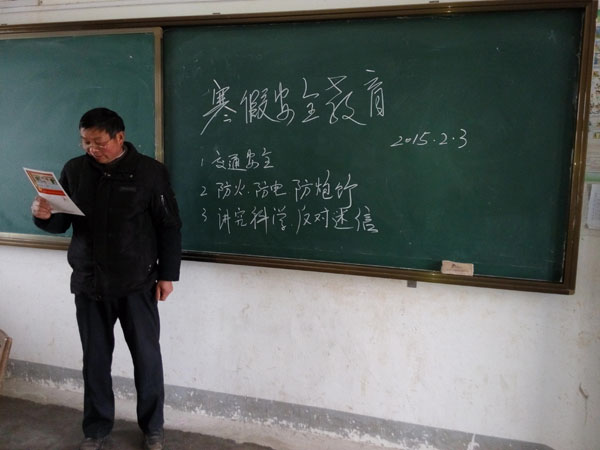 寒假安全教育
2015.2.3
1 交通安全
2 防火.防电 防炮竹
3 讲究科学 反对迷信